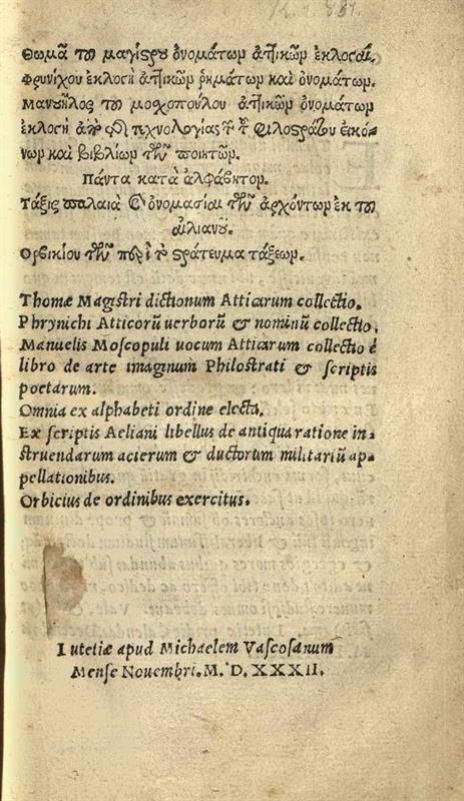 Θωμᾶ τοῦ μαγίστρου ὀνομάτων ἀττικῶν ἐκλογαί.
Φρυνίχου ἐκλογὴ ἀττικῶν ῥημάτων καὶ ὀνομάτων.
Μανουῆλος τοῦ μοσχοπούλου ἀττικῶν ὀνομάτων
ἐκλογὴ ἀπὸ τῆς τεχνολογίας τῶν τοῦ φιλοστράτου εἰκό-
νων καὶ βιβλίων τῶν ποιητῶν.
Πάντα κατὰ ἀλφάβητον.
Τάξις παλαιὰ καὶ ὀνομασίαι τῶν ἀρχόντων ἐκ τοῦ
αἰλιανοῦ.
Ὀρβικίου τῶν περὶ τὸ στράτευμα τάξεων.
Thomæ Magistri dictionum Atticarum collectio.
Phrynichi Atticorū uerborū & nominū collectio.
Manuelis Moscopuli uocum Atticarum collectio é
libro de arte imaginum Philostrati & scriptis
poetarum.
Omnia ex alphabeti ordine electa.
Ex scriptis Aeliani libellus de antiqua ratione in-
struendarum acierum & ductorum militariū ap-
pellationibus.
Orbicius de ordinibus exercitus.
Lutetiæ apud Michaelem Vascosanum
Mense Nouembri. M. D. XXXII.